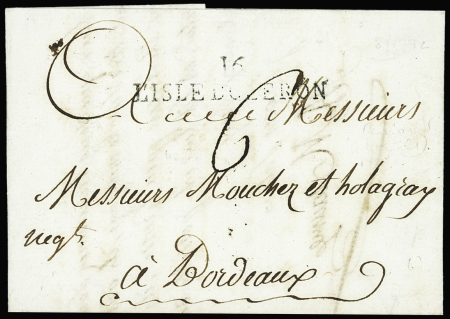 16
L'ISLE D'OLERON
A Messieurs
6
Messieurs Mouchez et holagray
negt.
à Bordeaux